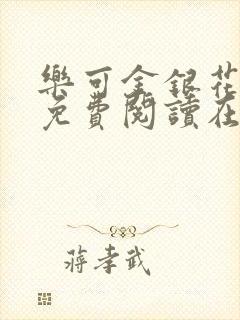 樂可金銀花
免費閱讀在
蔣孝武